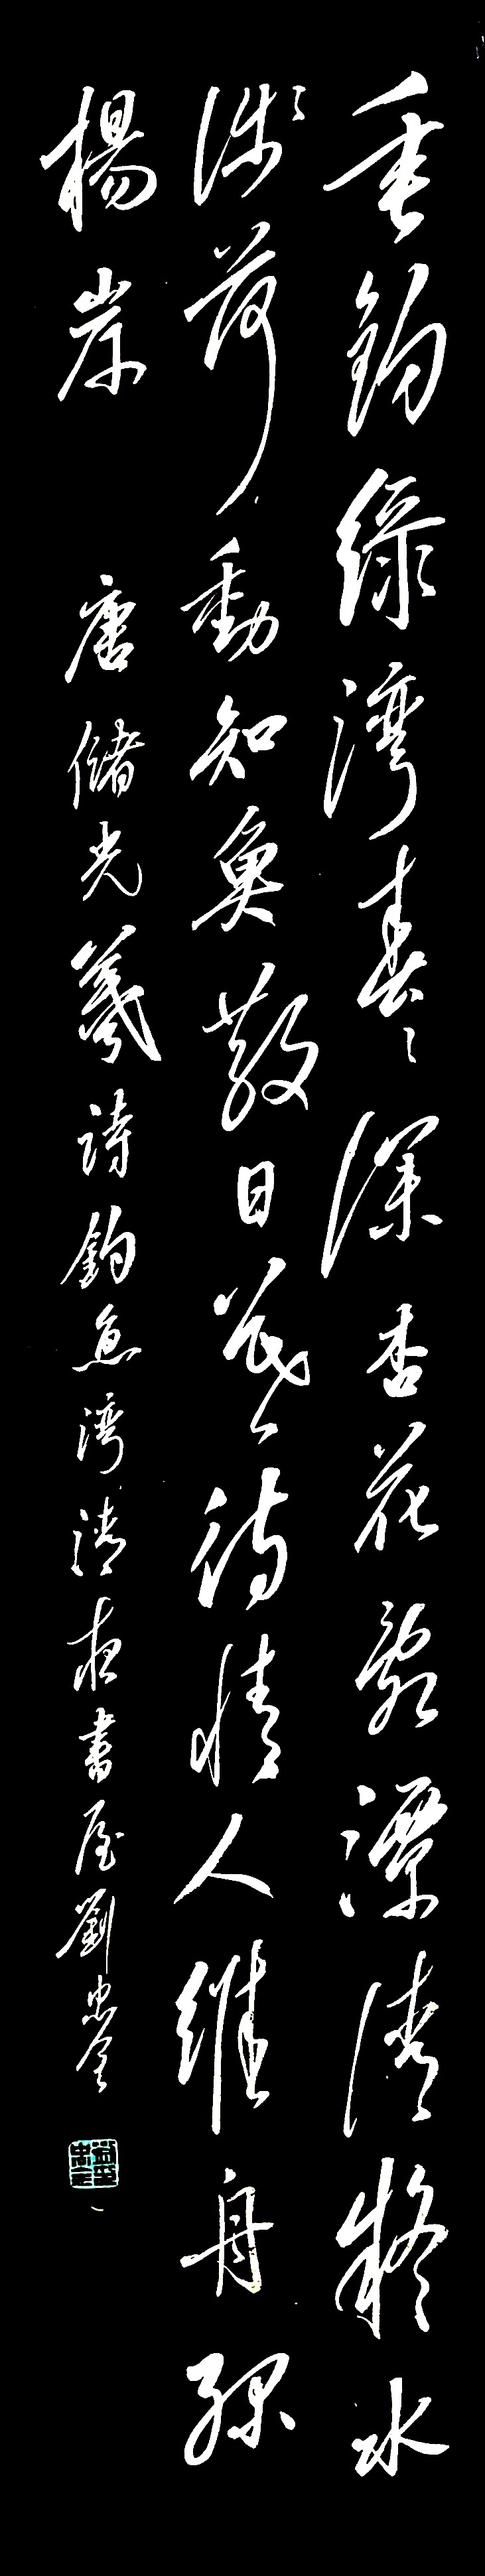 垂釣綠湾春々深杏花亂潭清疑水
淺荷動知魚散日暮待情人維舟綠
楊岸 唐儲光羲詩釣魚湾清夜書屋劉忠